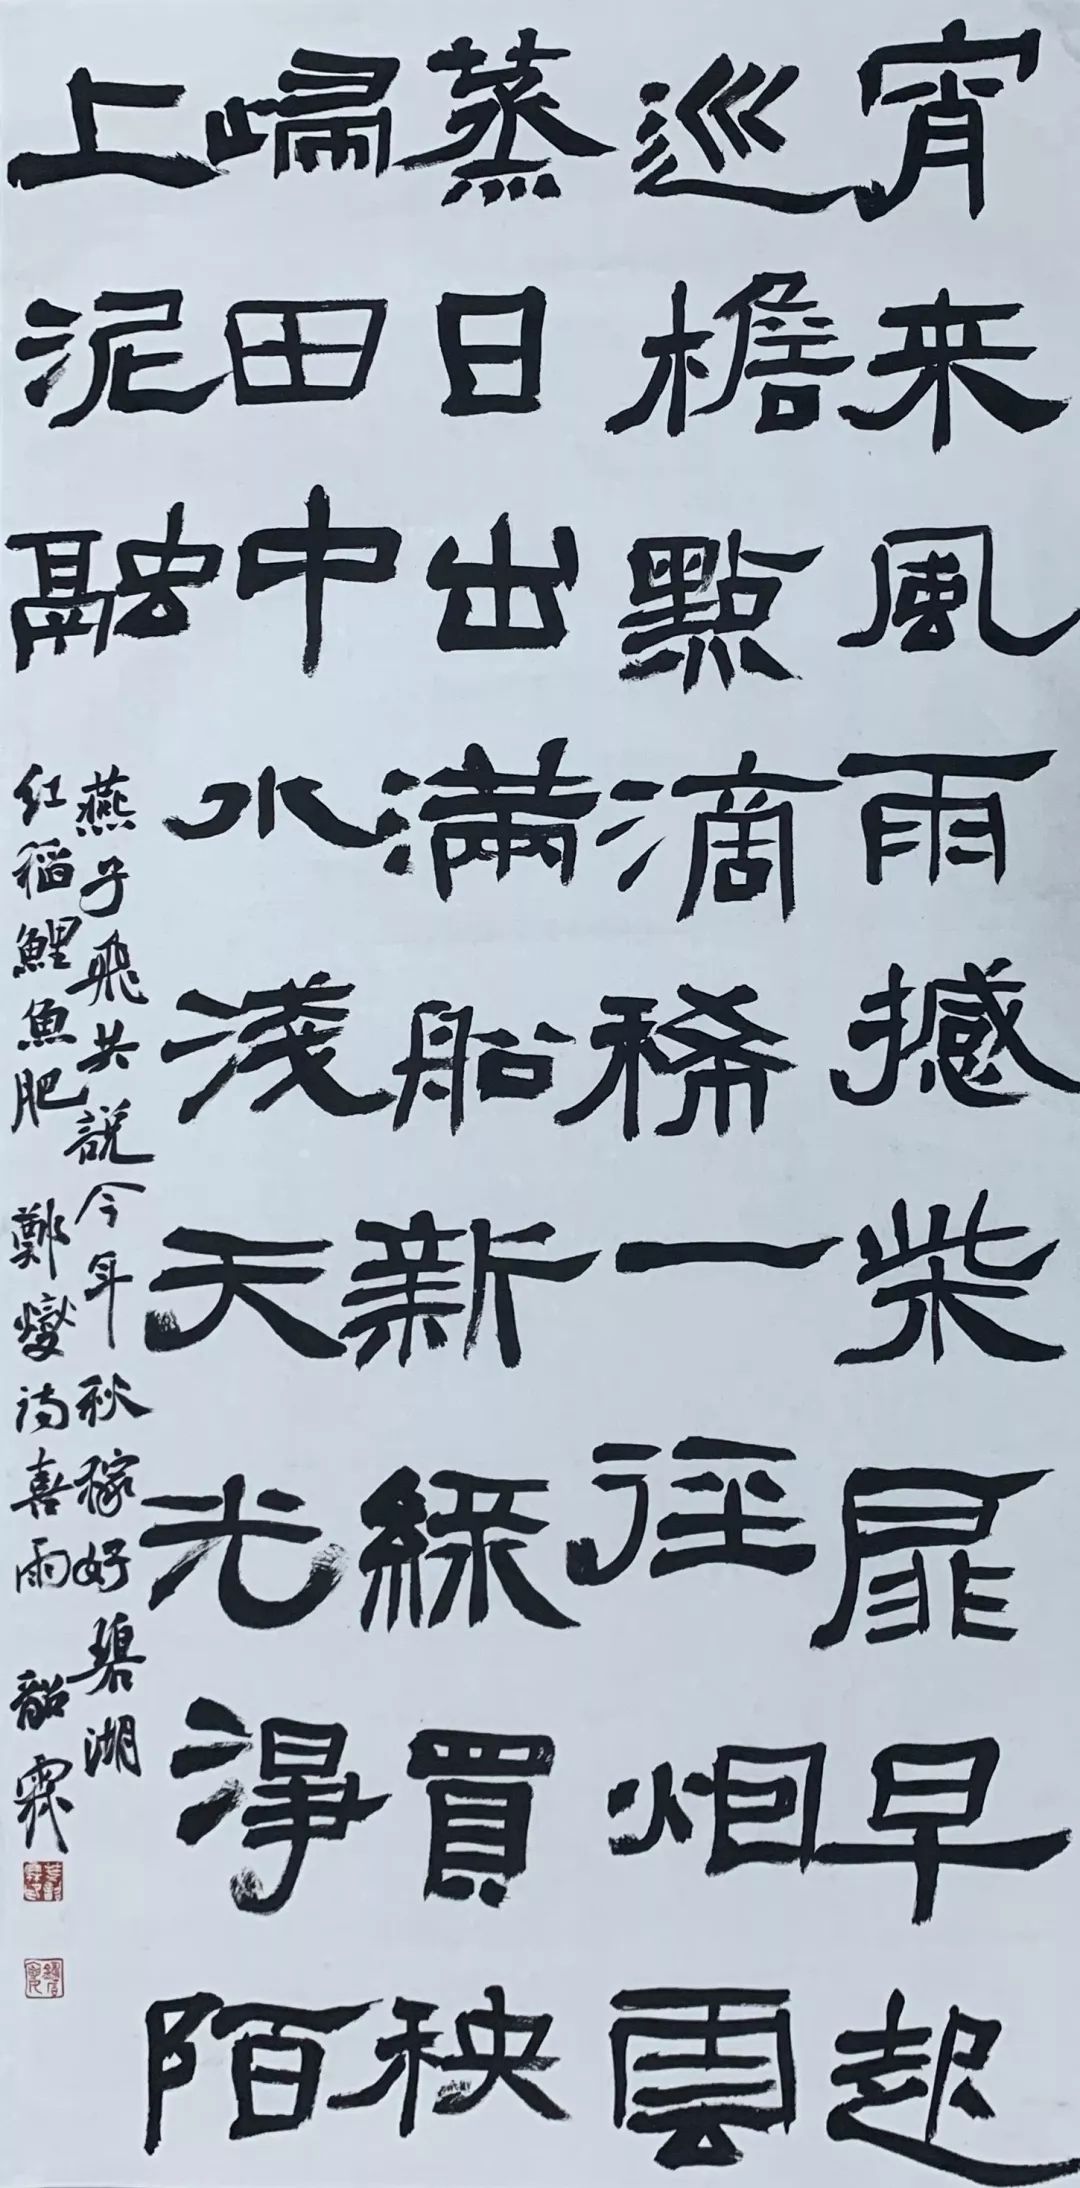 宵来風雨撼柴扉早起
巡檐點滴稀一徑烟雲
蒸日出満船新緑買秧
歸田中水淺天光淨陌
上泥融
燕子飛共說今年秋稼好碧湖
红稻鯉魚肥 鄭燮诗喜雨 韶霖